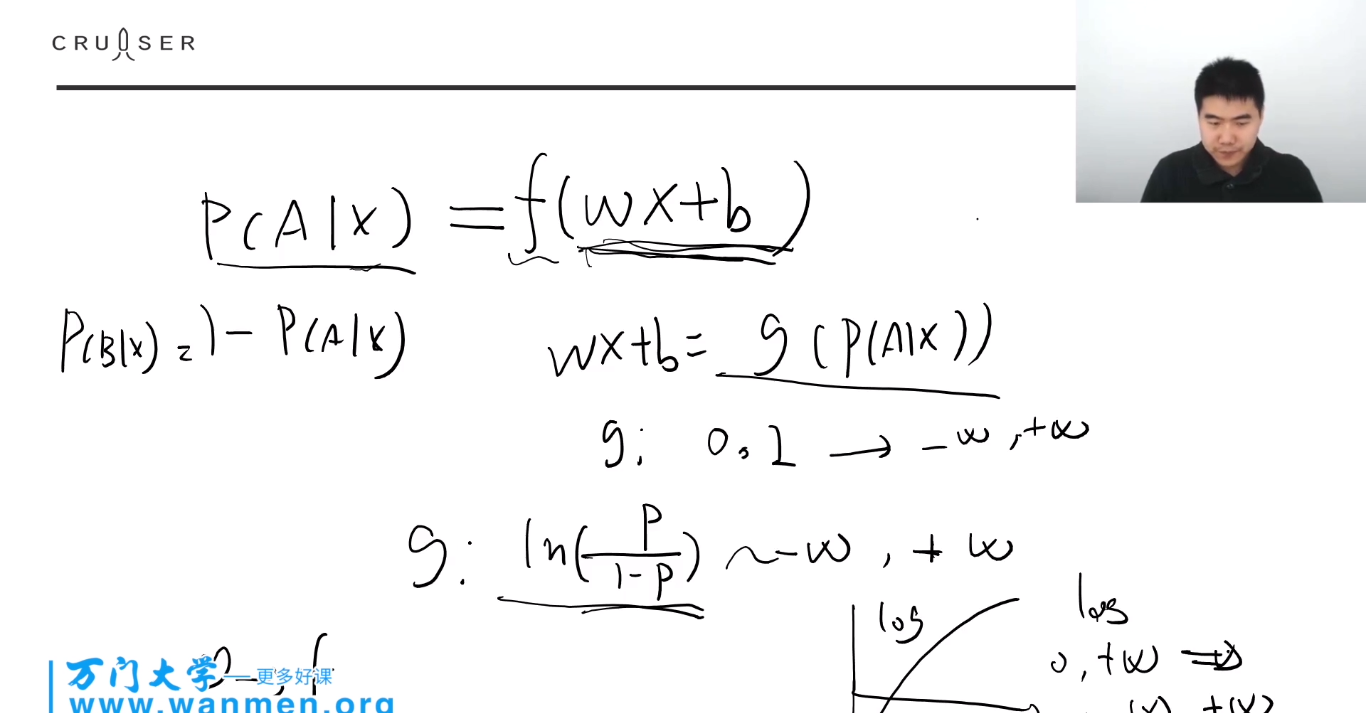 CRUISER
P(A|x) = f(wx+b)
P(B|x) = 1 - P(A|x)
wx+b = g(P(A|x))
g: 0, 1 → -∞, +∞
g: ln(p/(1-p)) ~ -∞, +∞
log
log
0, +∞ ⇒
万门大学 —— 更多好课
www.wanmen.org